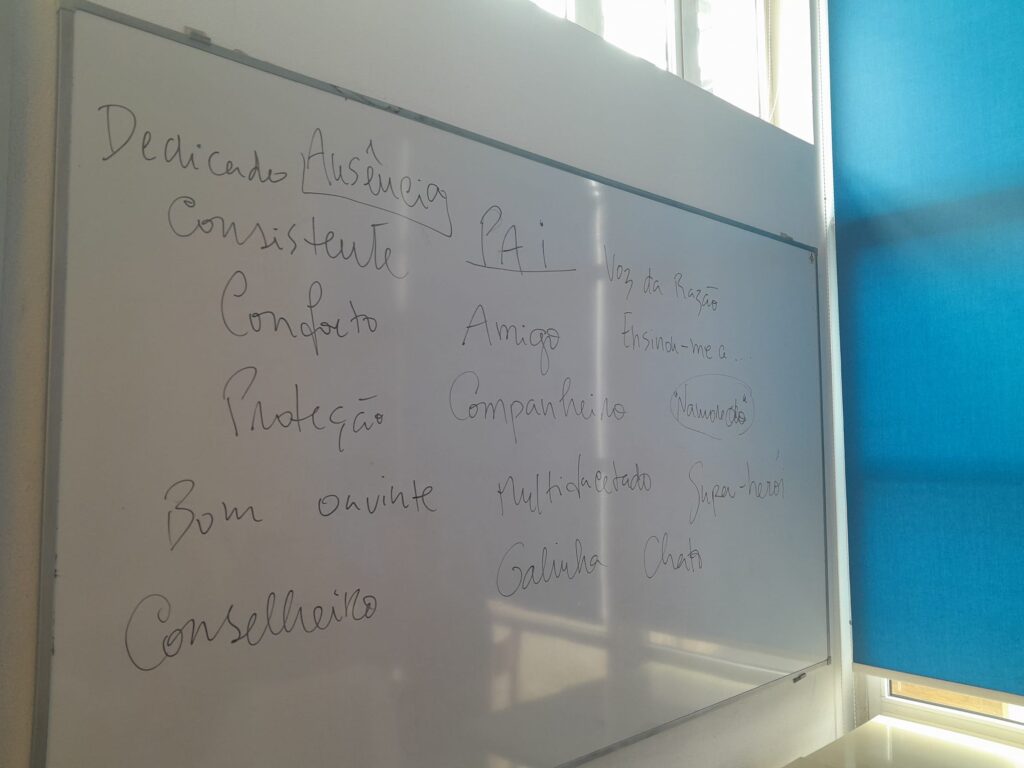 Dedicado Ausência
PAi
Consistente
Voz da Razão
Conforto Amigo Ensinou-me a ...
Proteção Companheiro "Namorado"
Bom ouvinte Multifacetado Super-herói
Galinha Chato
Conselheiro